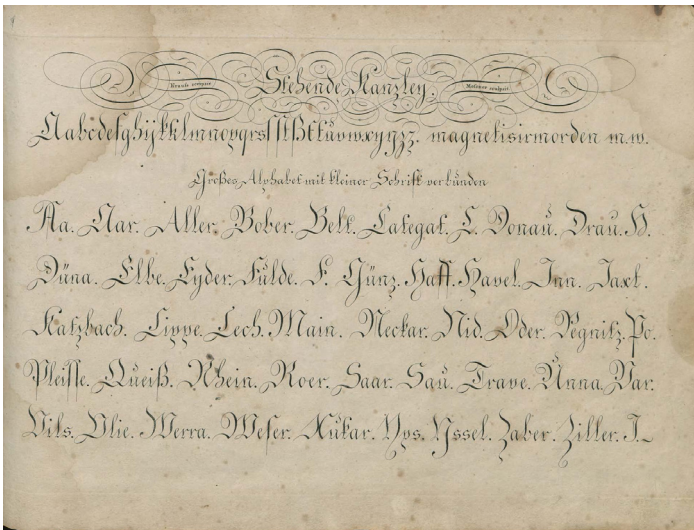 Stehende Kanzley.
Aabcdefghÿkklmnopqrsſstßtuüvwxyyzz. magnetisirmorden m.w.
Großes Alphabet mit kleiner Schrift verbunden
Aa. Aar. Aller. Bober. Belt. Categat. C. Donau. Drau. D.
Düna. Elbe. Eyder. Fulde. F. Günz. Haff. Havel. Inn. Jaxt.
Katzbach. Lippe. Lech. Main. Neckar. Nid. Oder. Pegnitz. Po.
Pleiſſe. Queiß. Rhein. Roer. Saar. Sau. Trave. Unna. Var.
Vils. Vlie. Werra. Weſer. Xukar. Yps. Yssel. Zaber. Ziller. Z.